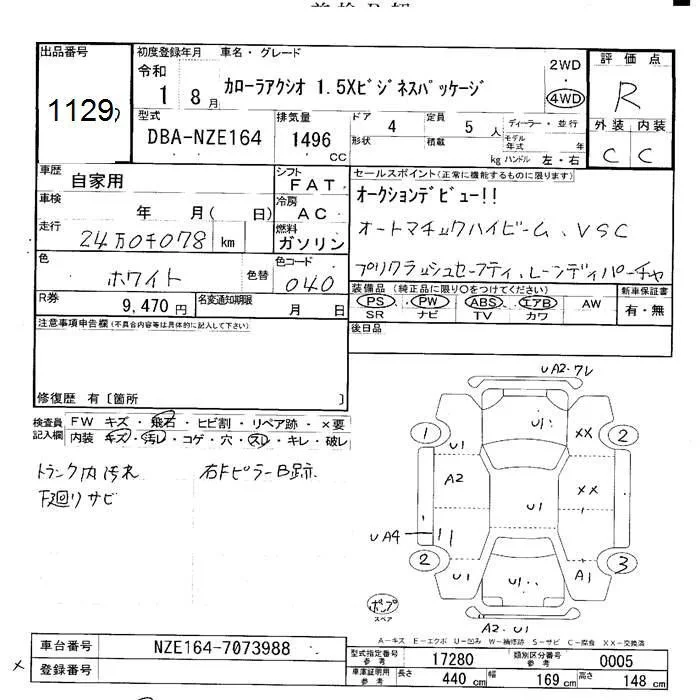 出品番号 初度登録年月 車名・グレード
1129
令和 1 8月 カローラアクシオ 1.5Xビジネスパッケージ
2WD
4WD
評価点
R
外装 内装
C C
型式 DBA-NZE164
排気量 1496 CC
ドア 4 定員 5人 ディーラー・並行
形状 積載 kg モデル年式 年
ハンドル 左・右
車歴 自家用
シフト FAT
セールスポイント(正常に機能するものに限ります)
オークションデビュー!!
オートマチックハイビーム、VSC
プリクラッシュセーフティ、レーンディパーチャ
車検 年 月( 日)
冷房 AC
走行 24万0千078 km
燃料 ガソリン
色 ホワイト 色替
色コード 040
R券 9,470円 名変通知期限 月 日
装備品 (純正品に限り○をつけてください) 新車保証書
PS PW ABS エアB AW 有・無
SR ナビ TV カワ
注意事項申告欄(不具合内容等は具体的に記入して下さい)
後日品
修復歴 有〔箇所 〕
検査員記入欄
FW キズ・飛石・ヒビ割・リペア跡・×要
内装 キズ・汚レ・コゲ・穴・スレ・キレ・破レ
トランク内汚れ 右Fピラー B跡
下廻りサビ
UA2・フレ
1 U1 U1 XX 2
A2 U1 XX
UA4
2 U1 U1 A1 3
ポンプ
スペア
A2・U1
A-キズ E-エクボ U-凹み W-補修跡 S-サビ C-腐食 XX-交換済
車台番号 NZE164-7073988
登録番号
×
型式指定番号 参考 17280 類別区分番号 参考 0005
車庫証明用 参考 長さ 440 cm 幅 169 cm 高さ 148 cm